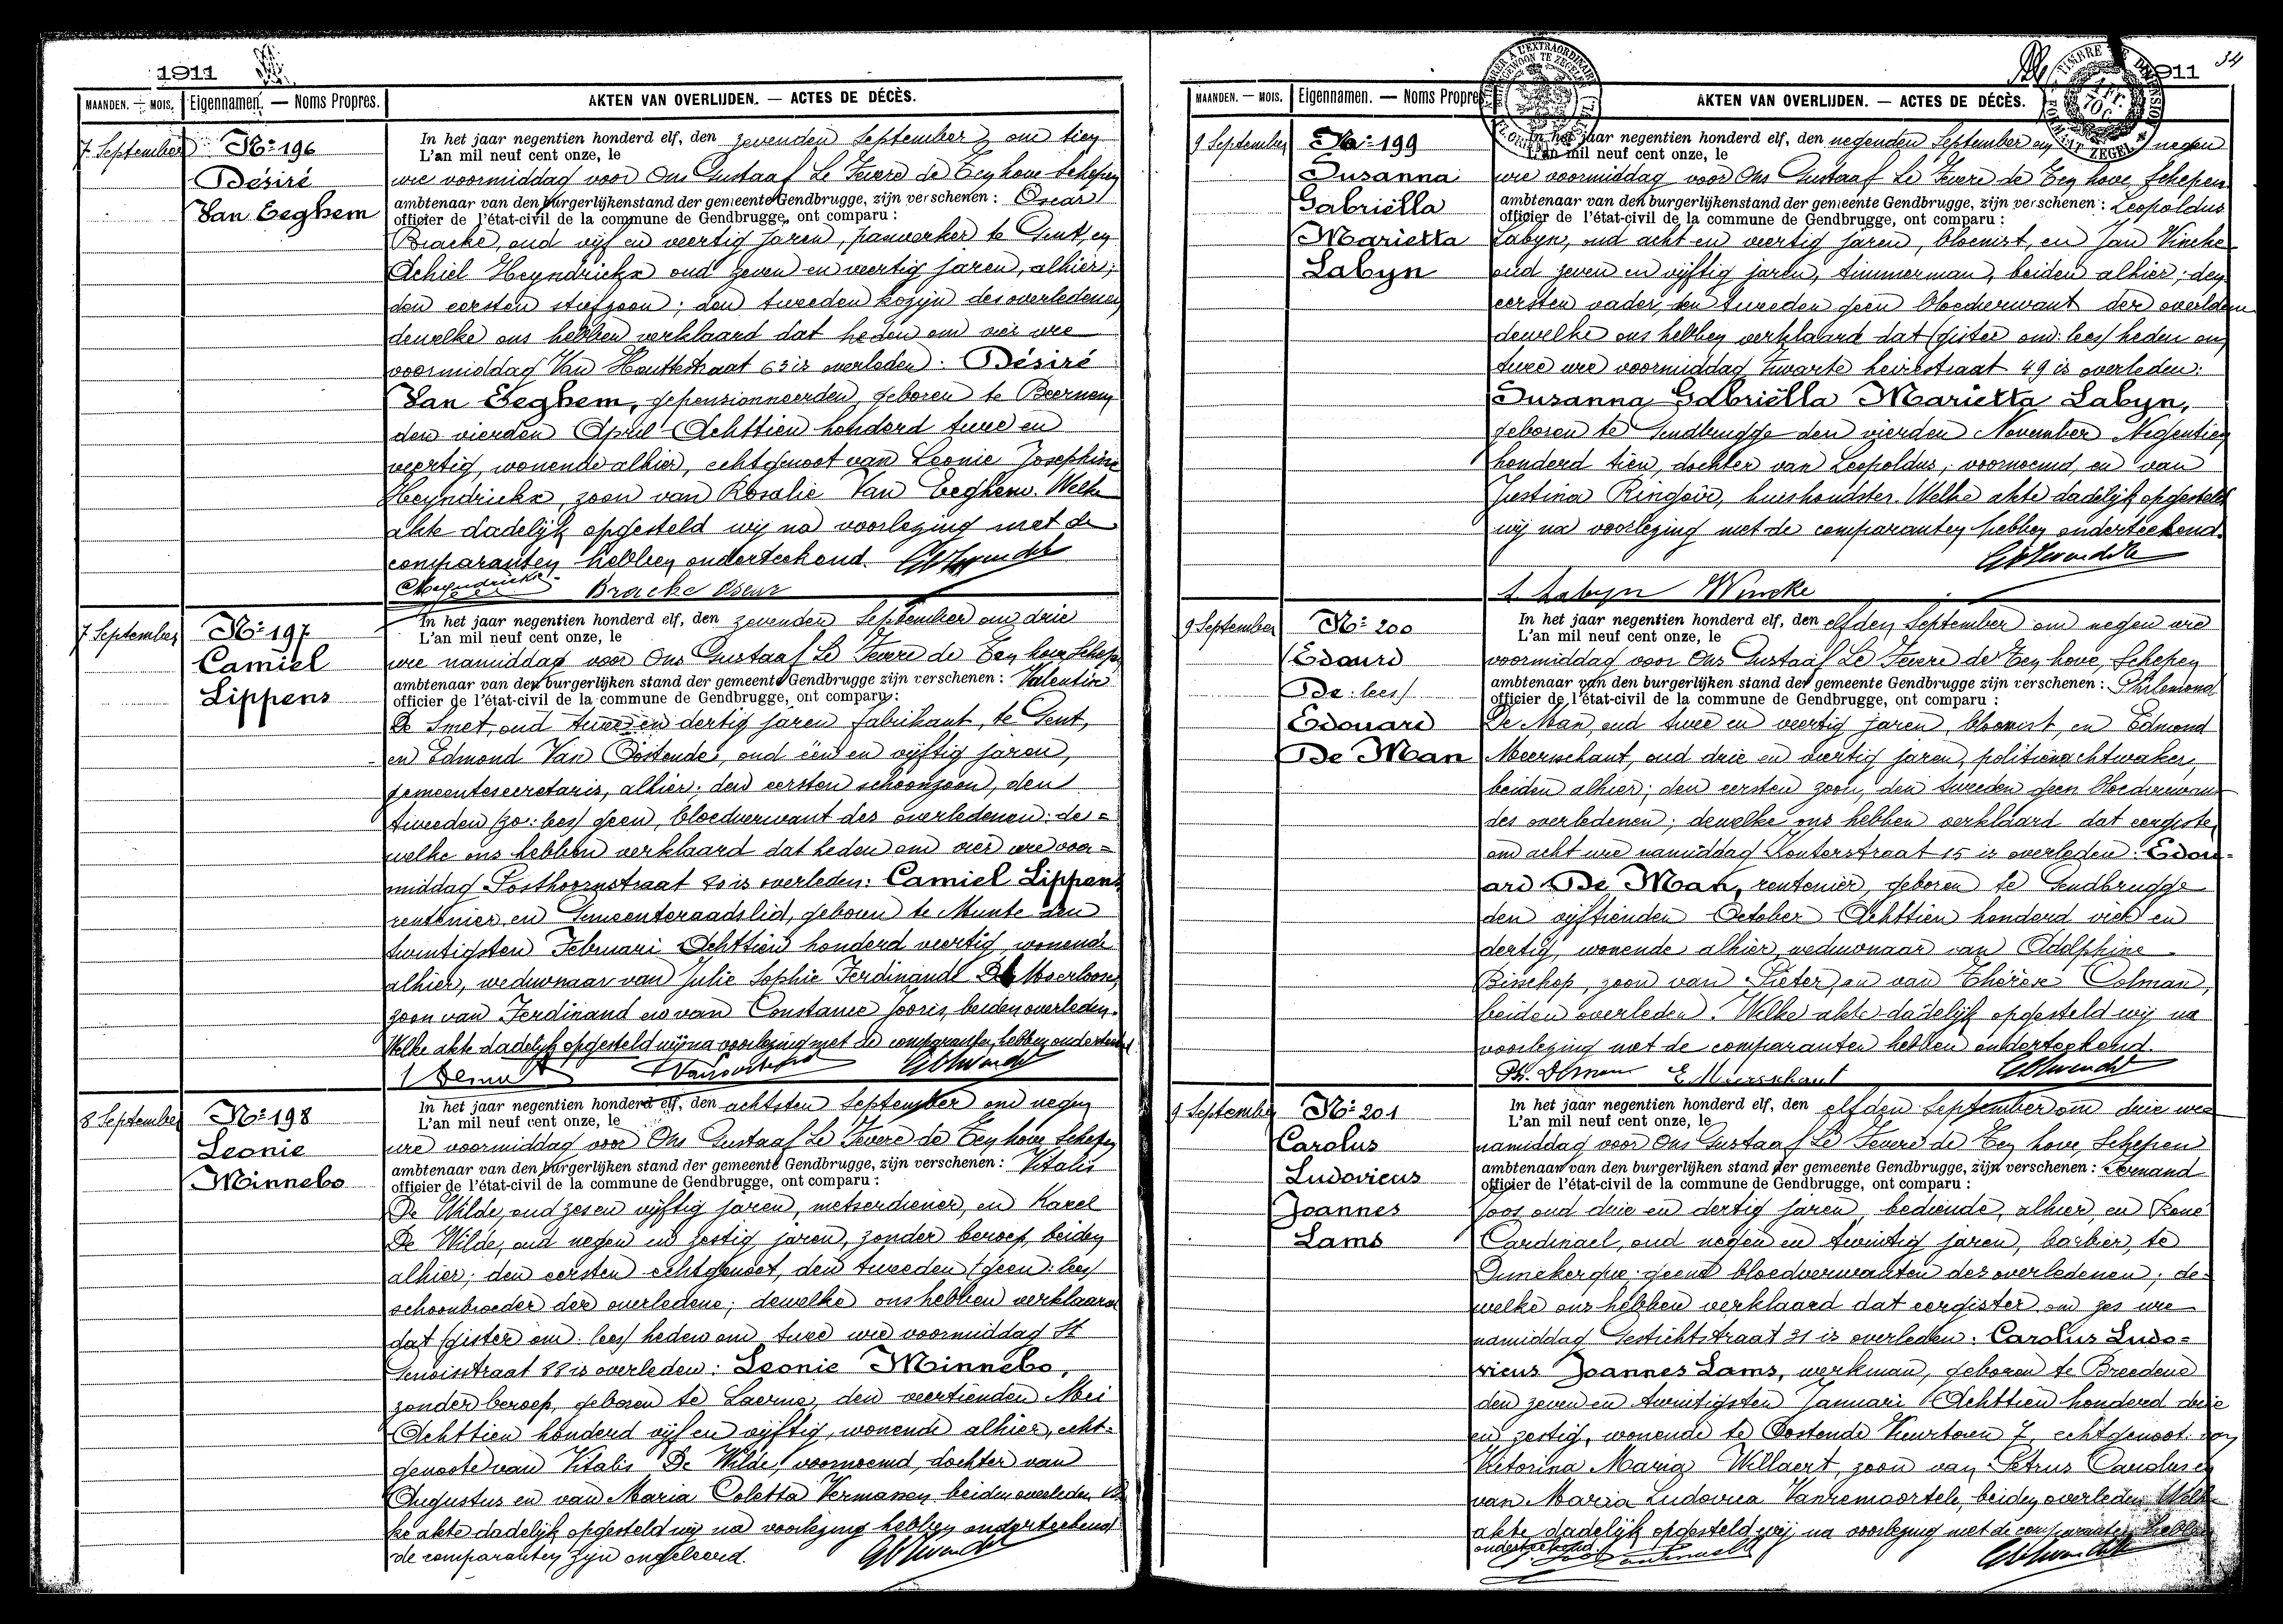 1911
MAANDEN. — MOIS. Eigennamen. — Noms Propres. AKTEN VAN OVERLIJDEN. — ACTES DE DÉCÈS.
7 September
No 196
Désiré
Van Eeghem
In het jaar negentien honderd elf, den zevenden September om tien
L'an mil neuf cent onze, le
ure voormiddag voor Ons Gustaaf Le Fevere de Ten hove Schepen
ambtenaar van den burgerlijkenstand der gemeente Gendbrugge, zijn verschenen : Oscar
officier de l'état-civil de la commune de Gendbrugge, ont comparu :
Bracke, oud vijf en veertig jaren, panwerker te Gent, en
Achiel Heyndrickx oud zeven en veertig jaren, alhier;
den eersten stiefzoon; den tweeden kozijn des overledenen
dewelke ons hebben verklaard dat heden om vier ure
voormiddag Van Houttestraat 63 is overleden: Désiré
Van Eeghem, gepensionneerden, geboren te Beernem
den vierden April Achttien honderd twee en
veertig, wonende alhier, echtgenoot van Leonie Josephine
Heyndrickx, zoon van Rosalie Van Eeghem. Welke
akte dadelijk opgesteld wij na voorlezing met de
comparanten hebben onderteekend.
Heyndrickx Bracke Oscar
7 September
No 197
Camiel
Lippens
In het jaar negentien honderd elf, den zevenden September om drie
L'an mil neuf cent onze, le
ure namiddag voor Ons Gustaaf Le Fevere de Ten hove Schepen
ambtenaar van den burgerlijken stand der gemeente Gendbrugge zijn verschenen : Valentin
officier de l'état-civil de la commune de Gendbrugge, ont comparu :
De Smet, oud twee en dertig jaren fabrikant, te Gent,
en Edmond Van Oostende, oud één en vijftig jaren,
gemeentesecretaris, alhier; den eersten schoonzoon, den
tweeden (zo: lees) geen, bloedverwant des overledenen: de=
welke ons hebben verklaard dat heden om vier ure voor=
middag Posthoornstraat 20 is overleden: Camiel Lippens
rentenier en Gemeenteraadslid, geboren te Munte den
twintigsten Februari Achttien honderd veertig, wonende
alhier, weduwnaar van Julie Sophie Ferdinande De Moerloose,
zoon van Ferdinand en van Constance Jooris, beiden overleden.
Welke akte dadelijk opgesteld wij na voorlezing met de comparanten hebben onderteekend
8 September
No 198
Leonie
Minnebo
In het jaar negentien honderd elf, den achtsten September om negen
L'an mil neuf cent onze, le
ure voormiddag voor Ons Gustaaf Le Fevere de Ten hove Schepen
ambtenaar van den burgerlijken stand der gemeente Gendbrugge, zijn verschenen : Vitalis
officier de l'état-civil de la commune de Gendbrugge, ont comparu :
De Wilde, oud zes en vijftig jaren, metserdiener, en Karel
De Wilde, oud negen en zestig jaren, zonder beroep, beiden
alhier; den eersten echtgenoot, den tweeden (geen: lees)
schoonbroeder der overledene; dewelke ons hebben verklaard
dat (gister om: lees) heden om twee ure voormiddag St
Genoisstraat 88 is overleden: Leonie Minnebo,
zonder beroep, geboren te Laerne, den veertienden Mei
Achttien honderd vijf en vijftig, wonende alhier, echt=
genoote van Vitalis De Wilde, voornoemd, dochter van
Augustus en van Maria Coletta Vermassen, beiden overleden. Wel
ke akte dadelijk opgesteld wij na voorlezing hebben onderteekend
de comparanten zijn ongeleerd.
34
1911
MAANDEN. — MOIS. Eigennamen. — Noms Propres. AKTEN VAN OVERLIJDEN. — ACTES DE DÉCÈS.
9 September
No 199
Susanna
Gabriëlla
Marietta
Labyn
In het jaar negentien honderd elf, den negenden September om negen
L'an mil neuf cent onze, le
ure voormiddag voor Ons Gustaaf Le Fevere de Ten hove, Schepen
ambtenaar van den burgerlijkenstand der gemeente Gendbrugge, zijn verschenen : Leopoldus
officier de l'état-civil de la commune de Gendbrugge, ont comparu :
Labyn, oud acht en veertig jaren, bloemist, en Jan Vincke
oud zeven en vijftig jaren, timmerman, beiden alhier; den
eersten vader, den tweeden geen bloedverwant der overledene
dewelke ons hebben verklaard dat (gister om: lees) heden om
twee ure voormiddag Zwarte heirstraat 49 is overleden:
Susanna Gabriëlla Marietta Labyn,
geboren te Gendbrugge den vierden November Negentien
honderd tien, dochter van Leopoldus, voornoemd, en van
Justina Ringoir, huishoudster. Welke akte dadelijk opgesteld
wij na voorlezing met de comparanten hebben onderteekend.
L Labyn Wincke
9 September
No 200
Edourd
De: lees)
Edouard
De Man
In het jaar negentien honderd elf, den elfden September om negen ure
L'an mil neuf cent onze, le
voormiddag voor Ons Gustaaf Le Fevere de Ten hove, Schepen
ambtenaar van den burgerlijken stand der gemeente Gendbrugge zijn verschenen : Philemond
officier de l'état-civil de la commune de Gendbrugge, ont comparu :
De Man, oud twee en veertig jaren, bloemist, en Edmond
Meerschaut, oud drie en veertig jaren, politienachtwaker,
beiden alhier; den eersten zoon, den tweeden geen bloedverwant
des overledenen; dewelke ons hebben verklaard dat eergister
om acht ure namiddag Kouterstraat 15 is overleden: Edou=
ard De Man, rentenier, geboren te Gendbrugge
den vijftienden October Achttien honderd vier en
dertig, wonende alhier, weduwnaar van Adolphine
Bisschop, zoon van Pieter, en van Thérèse Colman,
beiden overleden. Welke akte dadelijk opgesteld wij na
voorlezing met de comparanten hebben onderteekend.
Ph. Deman E. Meersschaut
9 September
No 201
Carolus
Ludovicus
Joannes
Lams
In het jaar negentien honderd elf, den elfden September om drie ure
L'an mil neuf cent onze, le
namiddag voor Ons Gustaaf Le Fevere de Ten hove, Schepen
ambtenaar van den burgerlijken stand der gemeente Gendbrugge, zijn verschenen : Fernand
officier de l'état-civil de la commune de Gendbrugge, ont comparu :
Joos, oud drie en dertig jaren, bediende, alhier, en René
Cardinael, oud negen en twintig jaren, barbier, te
Dunekerque; geene bloedverwanten des overledenen; de=
welke ons hebben verklaard dat eergister om zes ure
namiddag Gestichtstraat 31 is overleden: Carolus Ludo=
vicus Joannes Lams, werkman, geboren te Breedene
den zeven en twintigsten Januari Achttien honderd drie
en zestig, wonende te Oostende Vuurtoren 7, echtgenoot van
Victorina Maria Willaert, zoon van Petrus Carolus en
van Maria Ludovica Vanremoortele, beiden overleden. Welke
akte dadelijk opgesteld wij na voorlezing met de comparanten hebben
onderteekend.